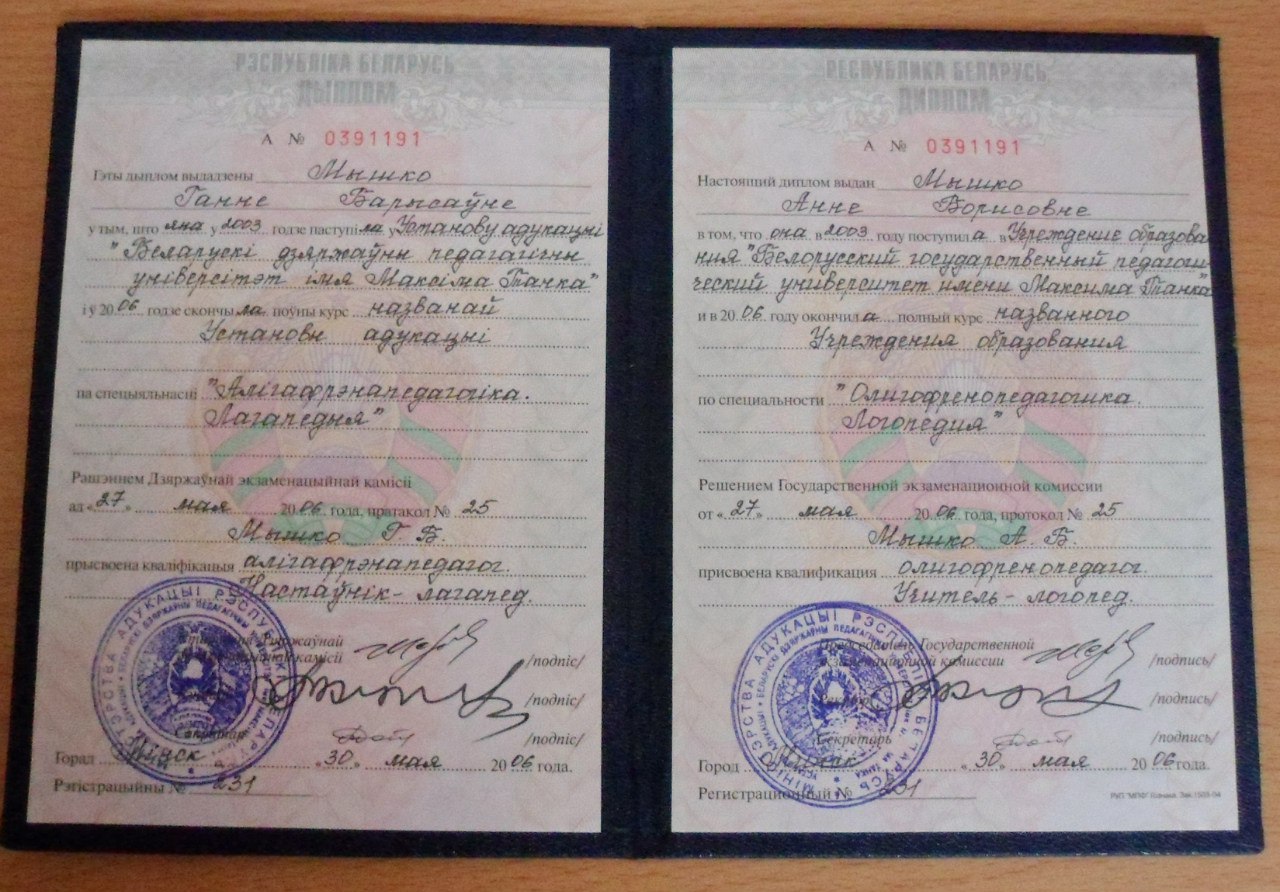 РЭСПУБЛІКА БЕЛАРУСЬ
ДЫПЛОМ
А № 0391191
Гэты дыплом выдадзены Мышко
Ганне Барысаўне
у тым, што яна у 2003 годзе паступіла у Установу адукацыі
"Беларускі дзяржаўны педагагічны
універсітэт імя Максіма Танка"
і ў 2006 годзе скончыла поўны курс названай
Установы адукацыі
па спецыяльнасці "Алігафрэнапедагогіка.
Лагапедыя"
Рашэннем Дзяржаўнай экзаменацыйнай камісіі
ад «27» мая 2006 года, пратакол № 25
Мышко Г. Б.
прысвоена кваліфікацыя алігафрэнапедагог.
Настаўнік-лагапед.
Дзяржаўнай
камісіі /подпіс/
/подпіс/
Сакратар /подпіс/
Горад Мінск «30» мая 2006 года.
Рэгістрацыйны № 231
РЕСПУБЛИКА БЕЛАРУСЬ
ДИПЛОМ
А № 0391191
Настоящий диплом выдан Мышко
Анне Борисовне
в том, что она в 2003 году поступила в Учреждение образова
ния "Белорусский государственный педагоги-
ческий университет имени Максима Танка"
и в 2006 году окончила полный курс названного
Учреждения образования
по специальности "Олигофренопедагогика.
Логопедия"
Решением Государственной экзаменационной комиссии
от «27» мая 2006 года, протокол № 25
Мышко А. Б.
присвоена квалификация олигофренопедагог.
Учитель-логопед.
Председатель Государственной
экзаменационной комиссии /подпись/
/подпись/
Секретарь /подпись/
Город Минск «30» мая 2006 года.
Регистрационный № 231